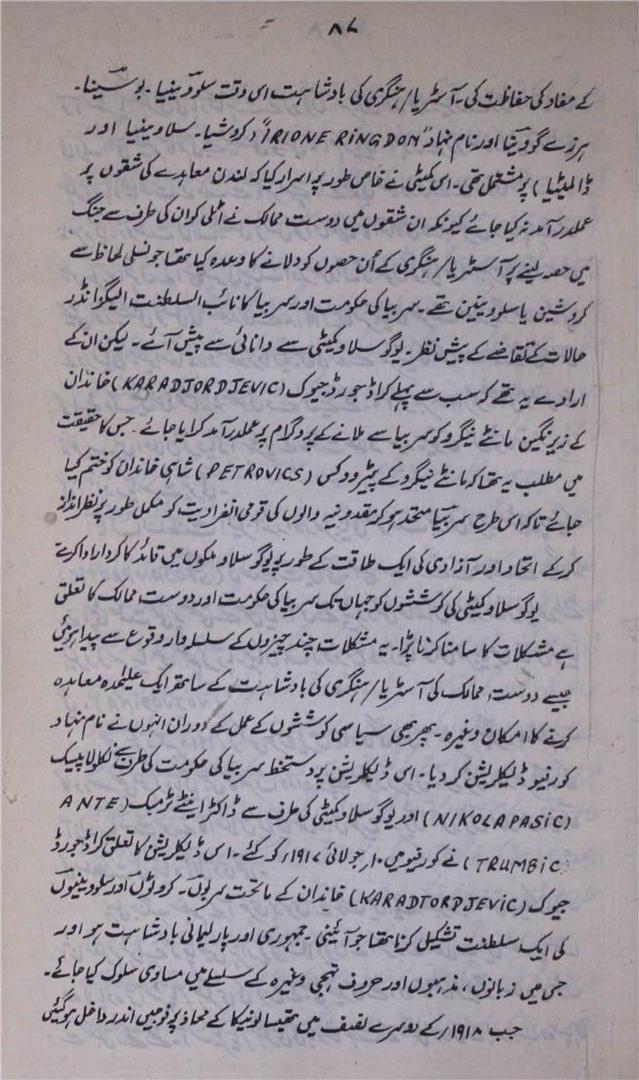 ۸۷
کے مفاد کی حفاظت کی۔ آسٹریا/ہنگری کی بادشاہت اس وقت سلووینیا۔ بوسینا۔
ہرزے گووینا اور نام نہاد "TRIONE RINGDOM" (کروشیا۔ سلاوینیا اور
ڈالمیٹیا) پر مشتمل تھی۔ اس کمیٹی نے خاص طور پر اسرار کیا کہ لندن معاہدے کی شقوں پر
عملدرآمد نہ کیا جائے کیونکہ ان شقوں میں دوست ممالک نے اٹلی کو ان کی طرف سے جنگ
میں حصہ لینے پر آسٹریا/ہنگری کے اُن حصوں کو دلانے کا وعدہ کیا تھا جو نسلی لحاظ سے
کروشین یا سلووینین تھے۔ سربیا کی حکومت اور سربیا کا نائب السلطنت الیگزانڈر
حالات کے تقاضے کے پیش نظر۔ یوگوسلاو کمیٹی سے دانائی سے پیش آئے۔ لیکن ان کے
ارادے یہ تھے کہ سب سے پہلے کراڈجورڈجیوک (KARADJORDJEVIC) خاندان
کے زیرنگین مانٹے نیگرو کو سربیا سے ملانے کے پروگرام پر عملدرآمد کرایا جائے۔ جس کا حقیقت
میں مطلب یہ تھا کہ مانٹے نیگرو کے پیٹرووکس (PETROVICS) شاہی خاندان کو ختم کیا
جائے تاکہ اس طرح سربیا متحد ہو کر مقدونیہ والوں کی قومی انفرادیت کو مکمل طور پر نظرانداز
کرکے اتحاد اور آزادی کی ایک طاقت کے طور پر یوگوسلاو ملکوں میں قائد کا کردار ادا کرے
یوگوسلاو کمیٹی کی کوششوں کو جہاں تک سربیا کی حکومت اور دوست ممالک کا تعلق
ہے مشکلات کا سامنا کرنا پڑا۔ یہ مشکلات چند چیزوں کے سلسلہ وار وقوع سے پیدا ہوئیں
جیسے دوست ممالک کی آسٹریا/ہنگری کی بادشاہت کے ساتھ ایک علیٰحدہ معاہدہ
کرنے کا امکان وغیرہ۔ پھر بھی سیاسی کوششوں کے عمل کے دوران انہوں نے نام نہاد
کورفیو ڈیکلریشن کر دیا۔ اس ڈیکلریشن پر دستخط سربیا کی حکومت کی طرف سے نکولا پیسک
(NIKOLA PASIC) اور یوگوسلاو کمیٹی کی طرف سے ڈاکٹر اینٹے ٹرمبک (ANTE
TRUMBIC) نے کورفیو میں ۱۰؍جولائی ۱۹۱۷ء کو کئے۔ اس ڈیکلریشن کا تعلق کراڈجورڈ
جیوک (KARADTORDJEVIC) خاندان کے ماتحت سربوں۔ کروٹوں اور سلووینیوں
کی ایک سلطنت تشکیل کرنا تھا جو آئینی۔ جمہوری اور پارلیمانی بادشاہت ہو اور
جس میں زبانوں، مذہبوں اور حروف تہجی وغیرہ کے سلسلے میں مساوی سلوک کیا جائے۔
جب ۱۹۱۸ء کے دوسرے نصف میں تھیسالونیکا کے محاذ پر فوجیں اندر داخل ہو گئیں